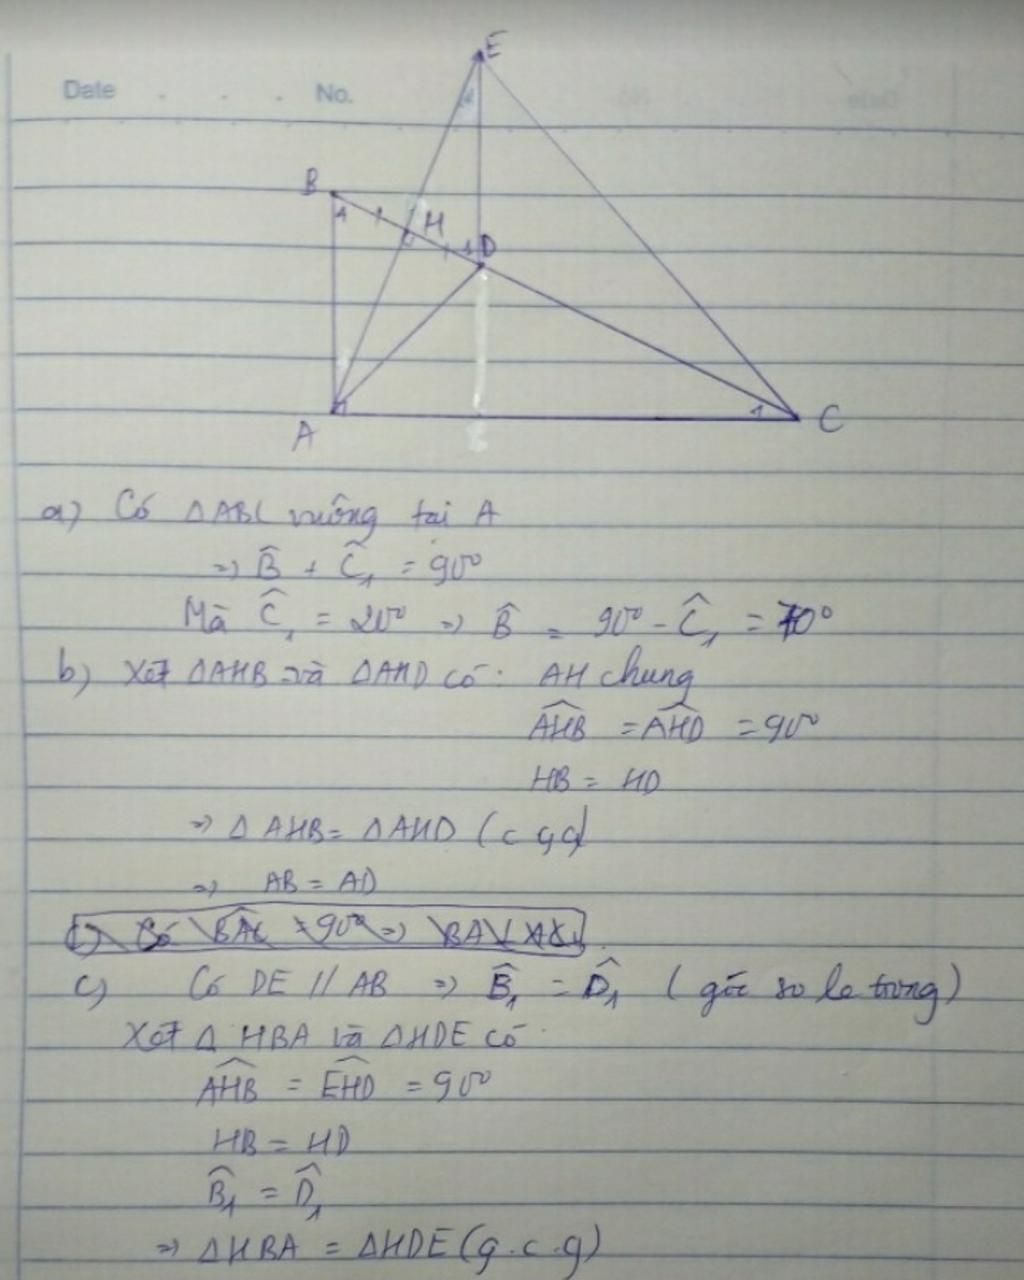 Date No.
E
B
1
H
1
D
A
1
1
C
a) Có ΔABC vuông tại A
=> B̂ + Ĉ₁ = 90°
Mà Ĉ₁ = 20° => B̂ = 90° - Ĉ₁ = 70°
b) Xét ΔAHB và ΔAHD có: AH chung
AHB = AHD = 90°
HB = HD
=> ΔAHB = ΔAHD (c g c)
=> AB = AD
c) Có BAC = 90° => BA ⊥ AC
c) Có DE // AB => B̂₁ = D̂₁ (góc so le trong)
Xét Δ HBA và ΔHDE có:
AHB = EHD = 90°
HB = HD
B̂₁ = D̂₁
=> ΔHBA = ΔHDE (g.c.g)